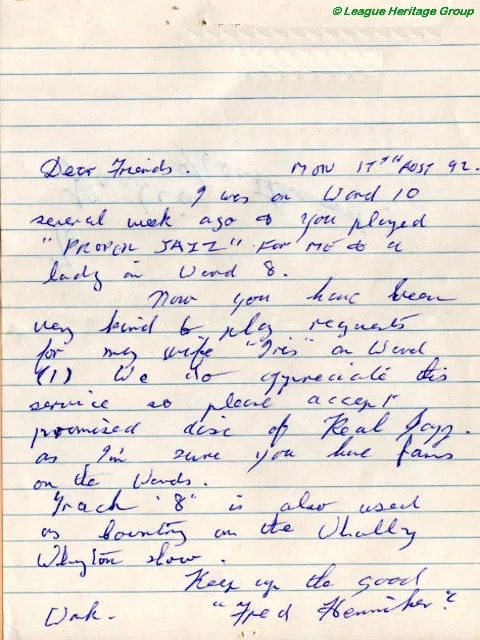 © League Heritage Group
Dear Friends. MON 17TH AUST 92.
I was on Ward 10
several week ago & you played
"PROPER JAZZ" FOR ME & a
lady on Ward 8.
Now you have been
very kind to play requests
for my wife "Iris" on Ward
(1) We do appreciate this
service so please accept
promised disc of Real Jazz.
as I'm sure you have fans
on the Wards.
Track "8" is also used
as on the Whally
show.
Keep up the good
Work. "Fred